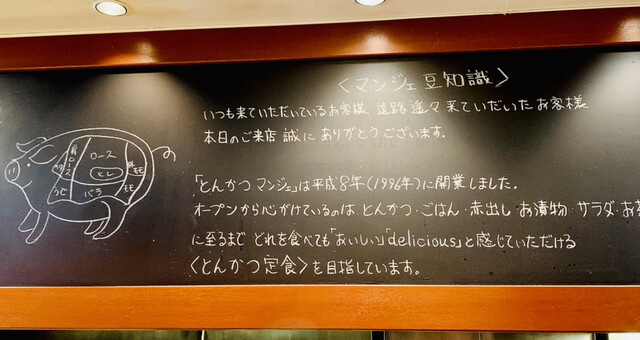 〈マンジェ豆知識〉
いつも来ていただいているお客様 道路遙々来ていだいたお客様
本日のご来店 誠に ありがとうございます。
「とんかつ マンジェ」は平成8年(1996年)に開業しました。
オープンから心がけているのは、とんかつ・ごはん・赤出し・お漬物・サラダ・お茶
に至るまで どれを食べても「おいしい」「delicious」と感じていただける
〈とんかつ定食〉を目指しています。
肩ロース
ロース
ヒレ
バラ
ウデ
モモ